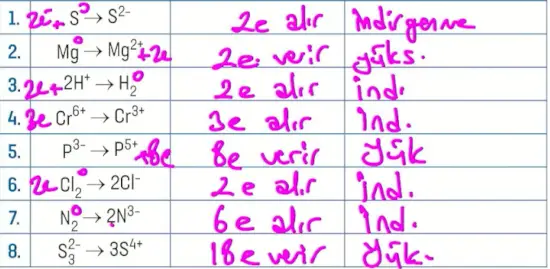 1. 2e⁻+ S⁰ → S²⁻ 2e alır indirgenme
2. Mg⁰ → Mg²⁺+2e 2e verir yüks.
3. 2e+2H⁺ → H₂⁰ 2e alır ind.
4. 3e Cr⁶⁺ → Cr³⁺ 3e alır ind.
5. P³⁻ → P⁵⁺+8e 8e verir Yük
6. 2e Cl₂⁰ → 2Cl⁻ 2e alır ind.
7. N₂⁰ → 2N³⁻ 6e alır ind.
8. S₃²⁻ → 3S⁴⁺ 18e verir Yük.